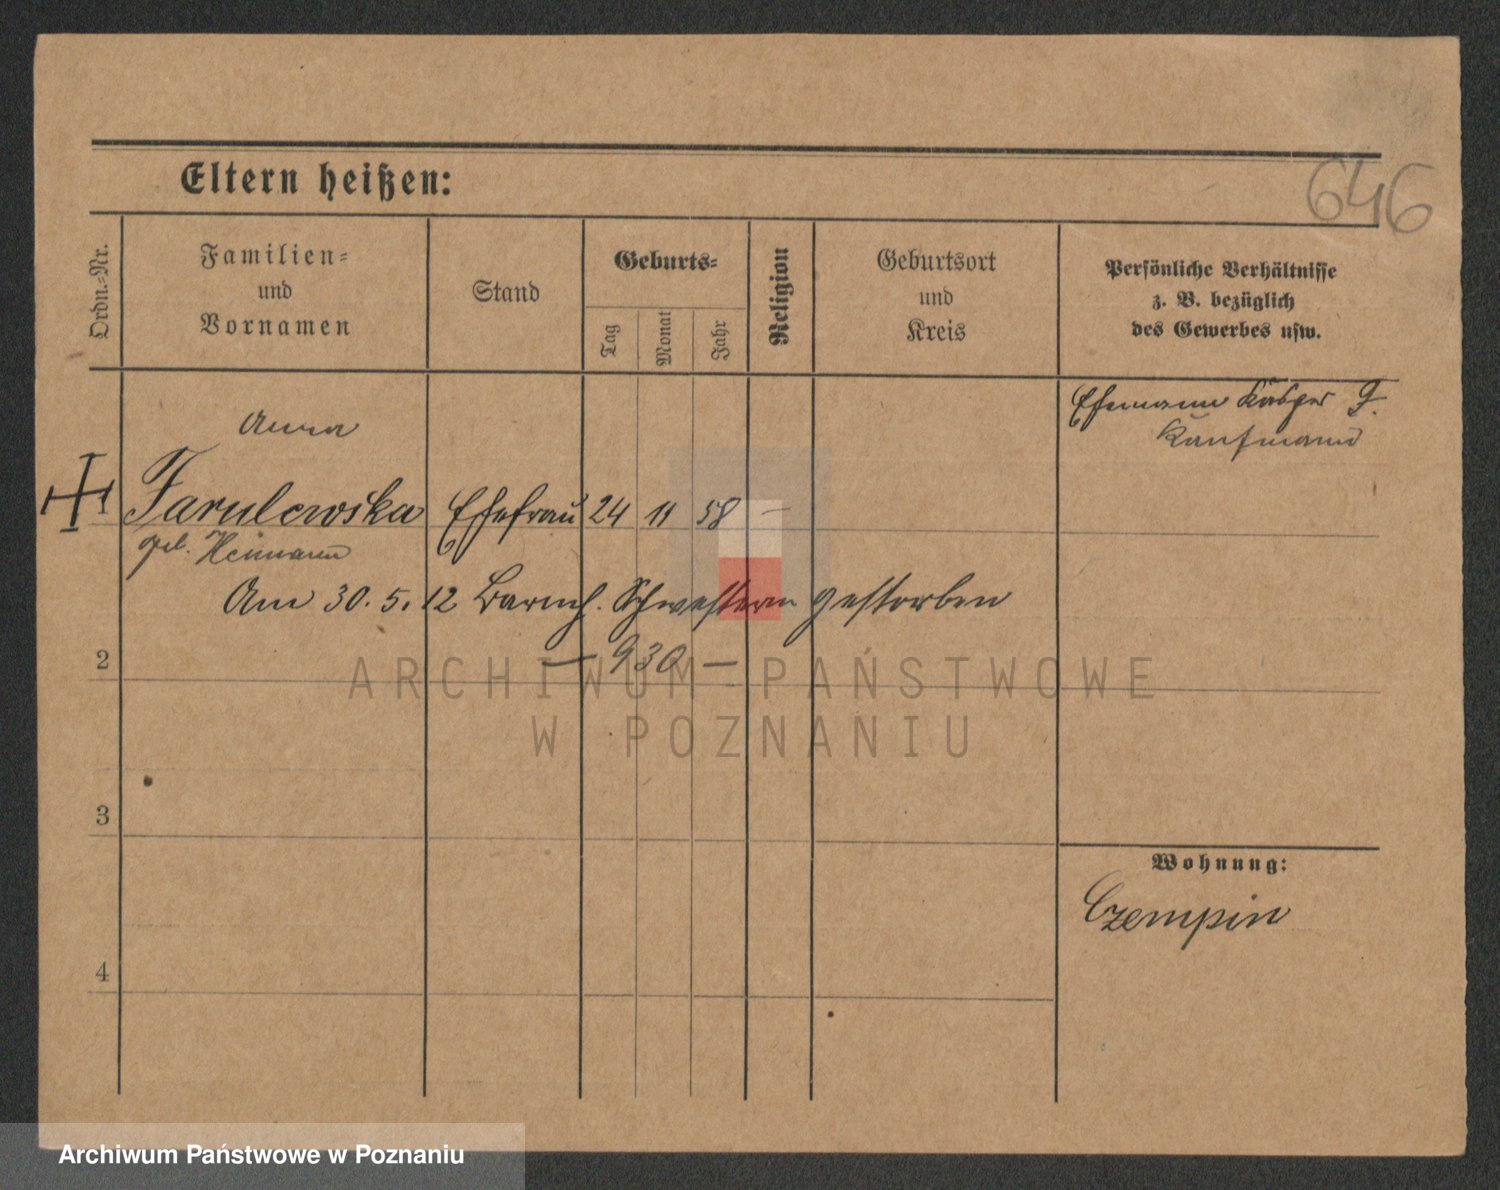 Eltern heißen:
646
Ordn.-Nr.
Familien-
und
Vornamen
Stand
Geburts-
Tag
Monat
Jahr
Religion
Geburtsort
und
Kreis
Persönliche Verhältnisse
z. B. bezüglich
des Gewerbes usw.
Ehemann Kasper F.
Kaufmann
Anna
Farulewska Ehefrau 24 11 58 —
geb. Heimann
Am 30. 5. 12 Barmh. Schwestern gestorben
— 930 —
2
3
4
Wohnung:
Czempin
ARCHIWUM PAŃSTWOWE
W POZNANIU
Archiwum Państwowe w Poznaniu